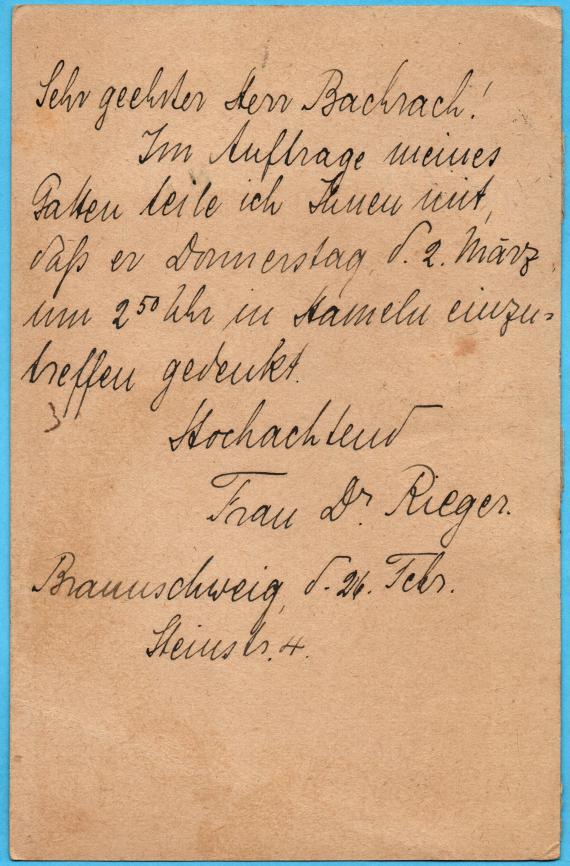 Sehr geehrter Herr Bachrach!
Im Auftrage meines
Gatten teile ich Ihnen mit,
daß er Donnerstag, d. 2. März
um 2⁵⁰ Uhr in Hameln einzu-
treffen gedenkt.
Hochachtend
Frau Dr. Rieger.
Braunschweig, d. 26. Febr.
Steinstr. 4.